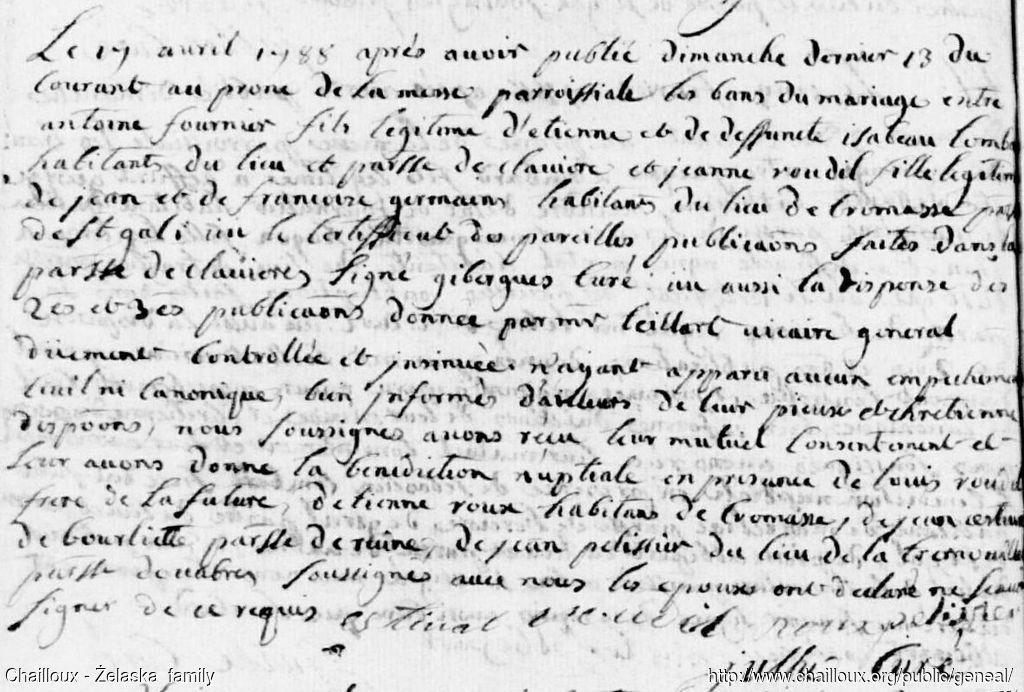 Le 17 avril 1788 après avoir publié dimanche dernier 13 du
courant au prone de la messe parroissiale les bans du mariage entre
antoine fournier fils légitime d'etienne et de deffuncte isabeau
habitants du lieu et parsse de claviere et jeanne roudil fille legitime
de jean et de francoise germains habitans du lieu de Cromasse
de st gal, vu le certifficat des pareilles publicaons faites dans la
parsse de clavieres signé giberques curé vu aussi la dispense des
2es et 3es publicaons donnée par mr teillart vicaire general
duement controllée et insinuée, n'ayant apparu aucun empechement
civil ni canonique, bien informés d'ailleurs de leur pieuse et chretienne
dispoons, nous soussignés avons recu leur mutuel consentement et
leur avons donné la bénédiction nuptiale en présence de louis roudil
frere de la future, d'etienne roux habitans de Cromasse, de jean estival
de bourliette parsse de ruine, de jean pelissier du lieu de la
parsse soussignés avec nous les epoux ont declaré ne scavoir
signer de ce requis estival roudil roux pelissier
curé
Chailloux - Żelaska family
http://www.chailloux.org/public/geneal/